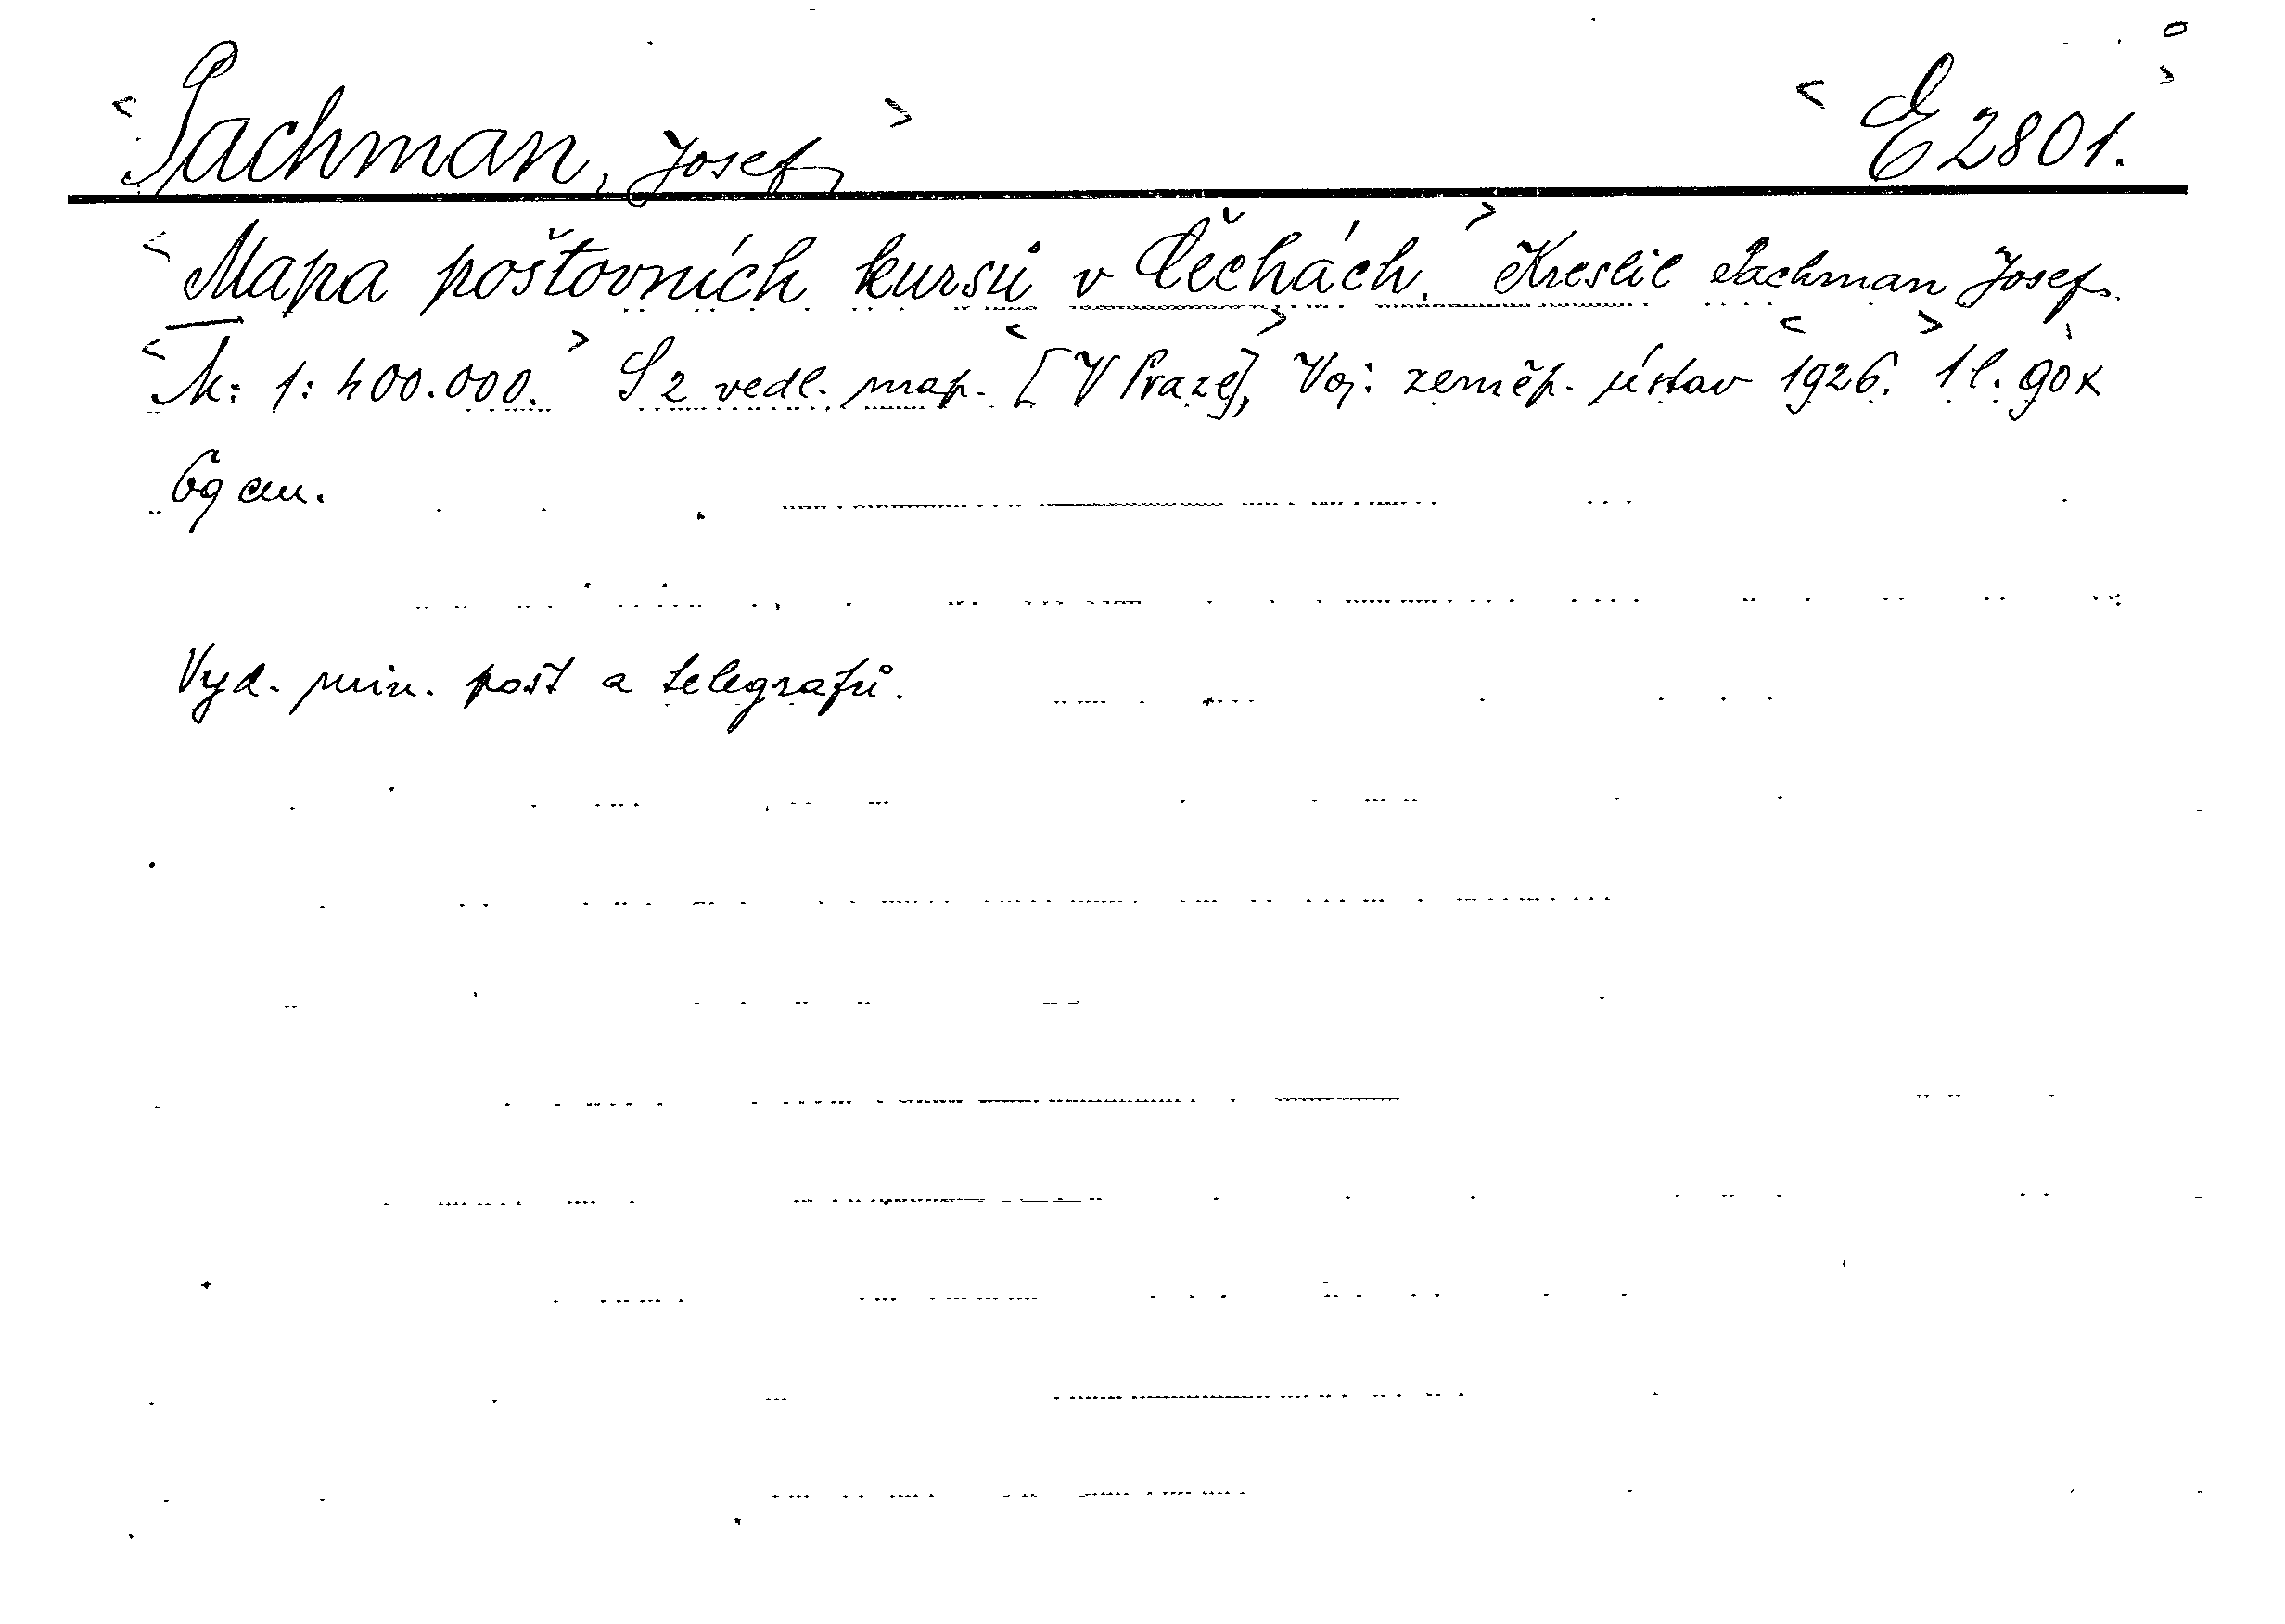 <Pachman, Josef,> <E 2801.>
<Mapa poštovních kursů v Čechách.> Kreslil Pachman Josef.
<M: 1:400.000.> S 2 vedl. map. <[V Praze],> Voj. zeměp. ústav <1926.> 1 l. 90 x
69 cm.
Vyd. min. pošt a telegrafů.